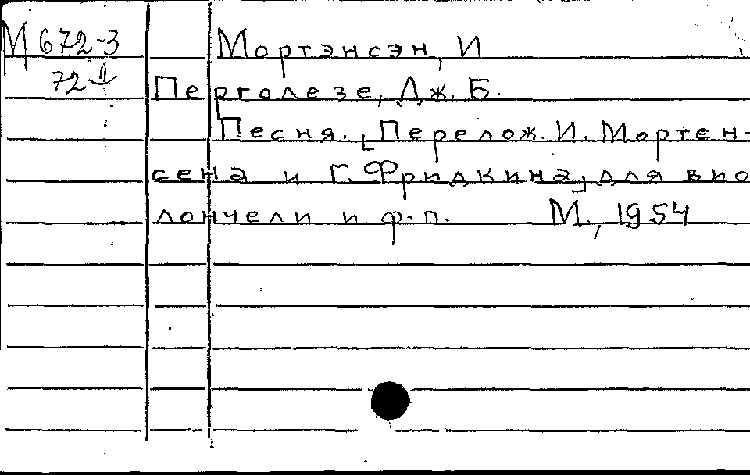 М 672-3 Мортэнсэн, И
72-II
Перголезе, Дж. Б.
Песня. [Перелож. И. Мортен-
сена и Г. Фридкина] для вио
лончели и ф.-п. М., 1954